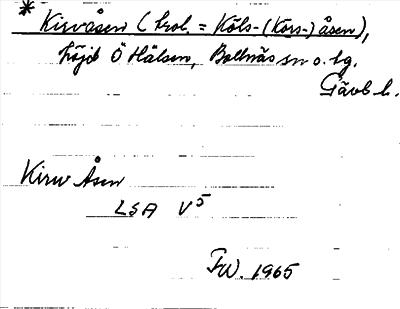 * Kirvåsen (trol. = Köls- (Kors-) åsen),
höjd Ö Hälsen, Bollnäs sn o. tg.
Gävb l.
Kirw Åsen
LSA V5
FW. 1965